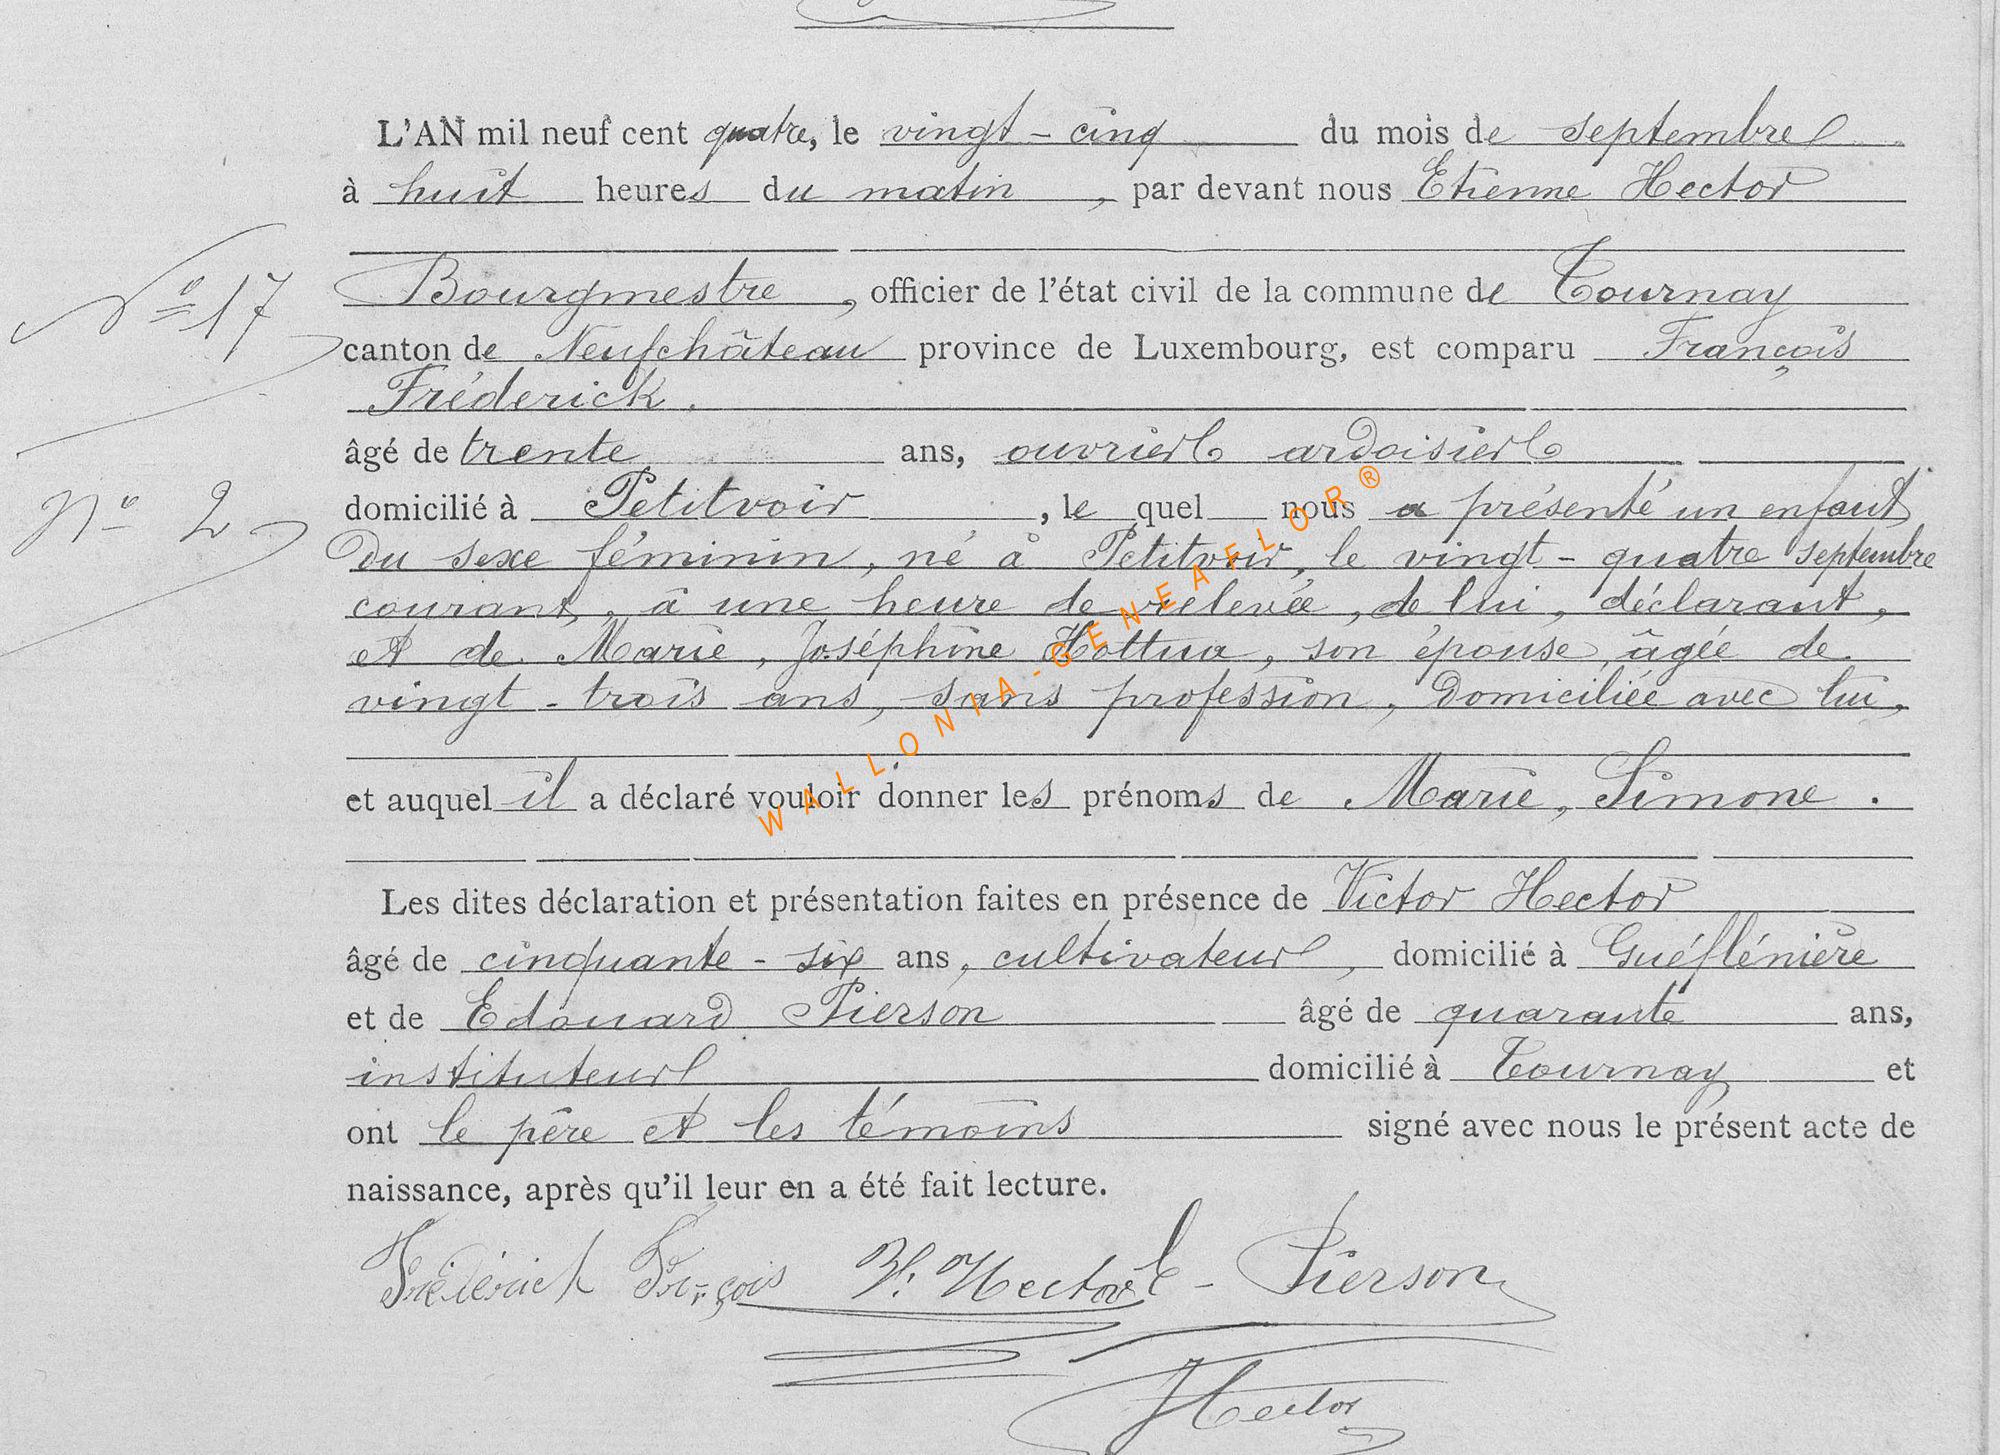 L'AN mil neuf cent quatre, le vingt-cinq du mois de septembre
à huit heures du matin, par devant nous Etienne Hector
Bourgmestre, officier de l'état civil de la commune de Tournay
N° 17
canton de Neufchâteau province de Luxembourg, est comparu François
Fréderick.
âgé de trente ans, ouvrier ardoisier
N° 2
domicilié à Petitvoir, le quel nous a présenté un enfant
du sexe féminin, né à Petitvoir, le vingt-quatre septembre
courant, à une heure de relevée, de lui, déclarant,
et de Marie, Joséphine Hottua, son épouse, âgée de
vingt-trois ans, sans profession, domiciliée avec lui,
et auquel il a déclaré vouloir donner les prénoms de Marie, Simone.
Les dites déclaration et présentation faites en présence de Victor Hector
âgé de cinquante-six ans, cultivateur, domicilié à Guéflénière
et de Edouard Pierson âgé de quarante ans,
instituteur domicilié à Tournay et
ont le père et les témoins signé avec nous le présent acte de
naissance, après qu'il leur en a été fait lecture.
Fréderick François V. Hector Pierson
Hector
WALLONIA-GENEAFLOR®